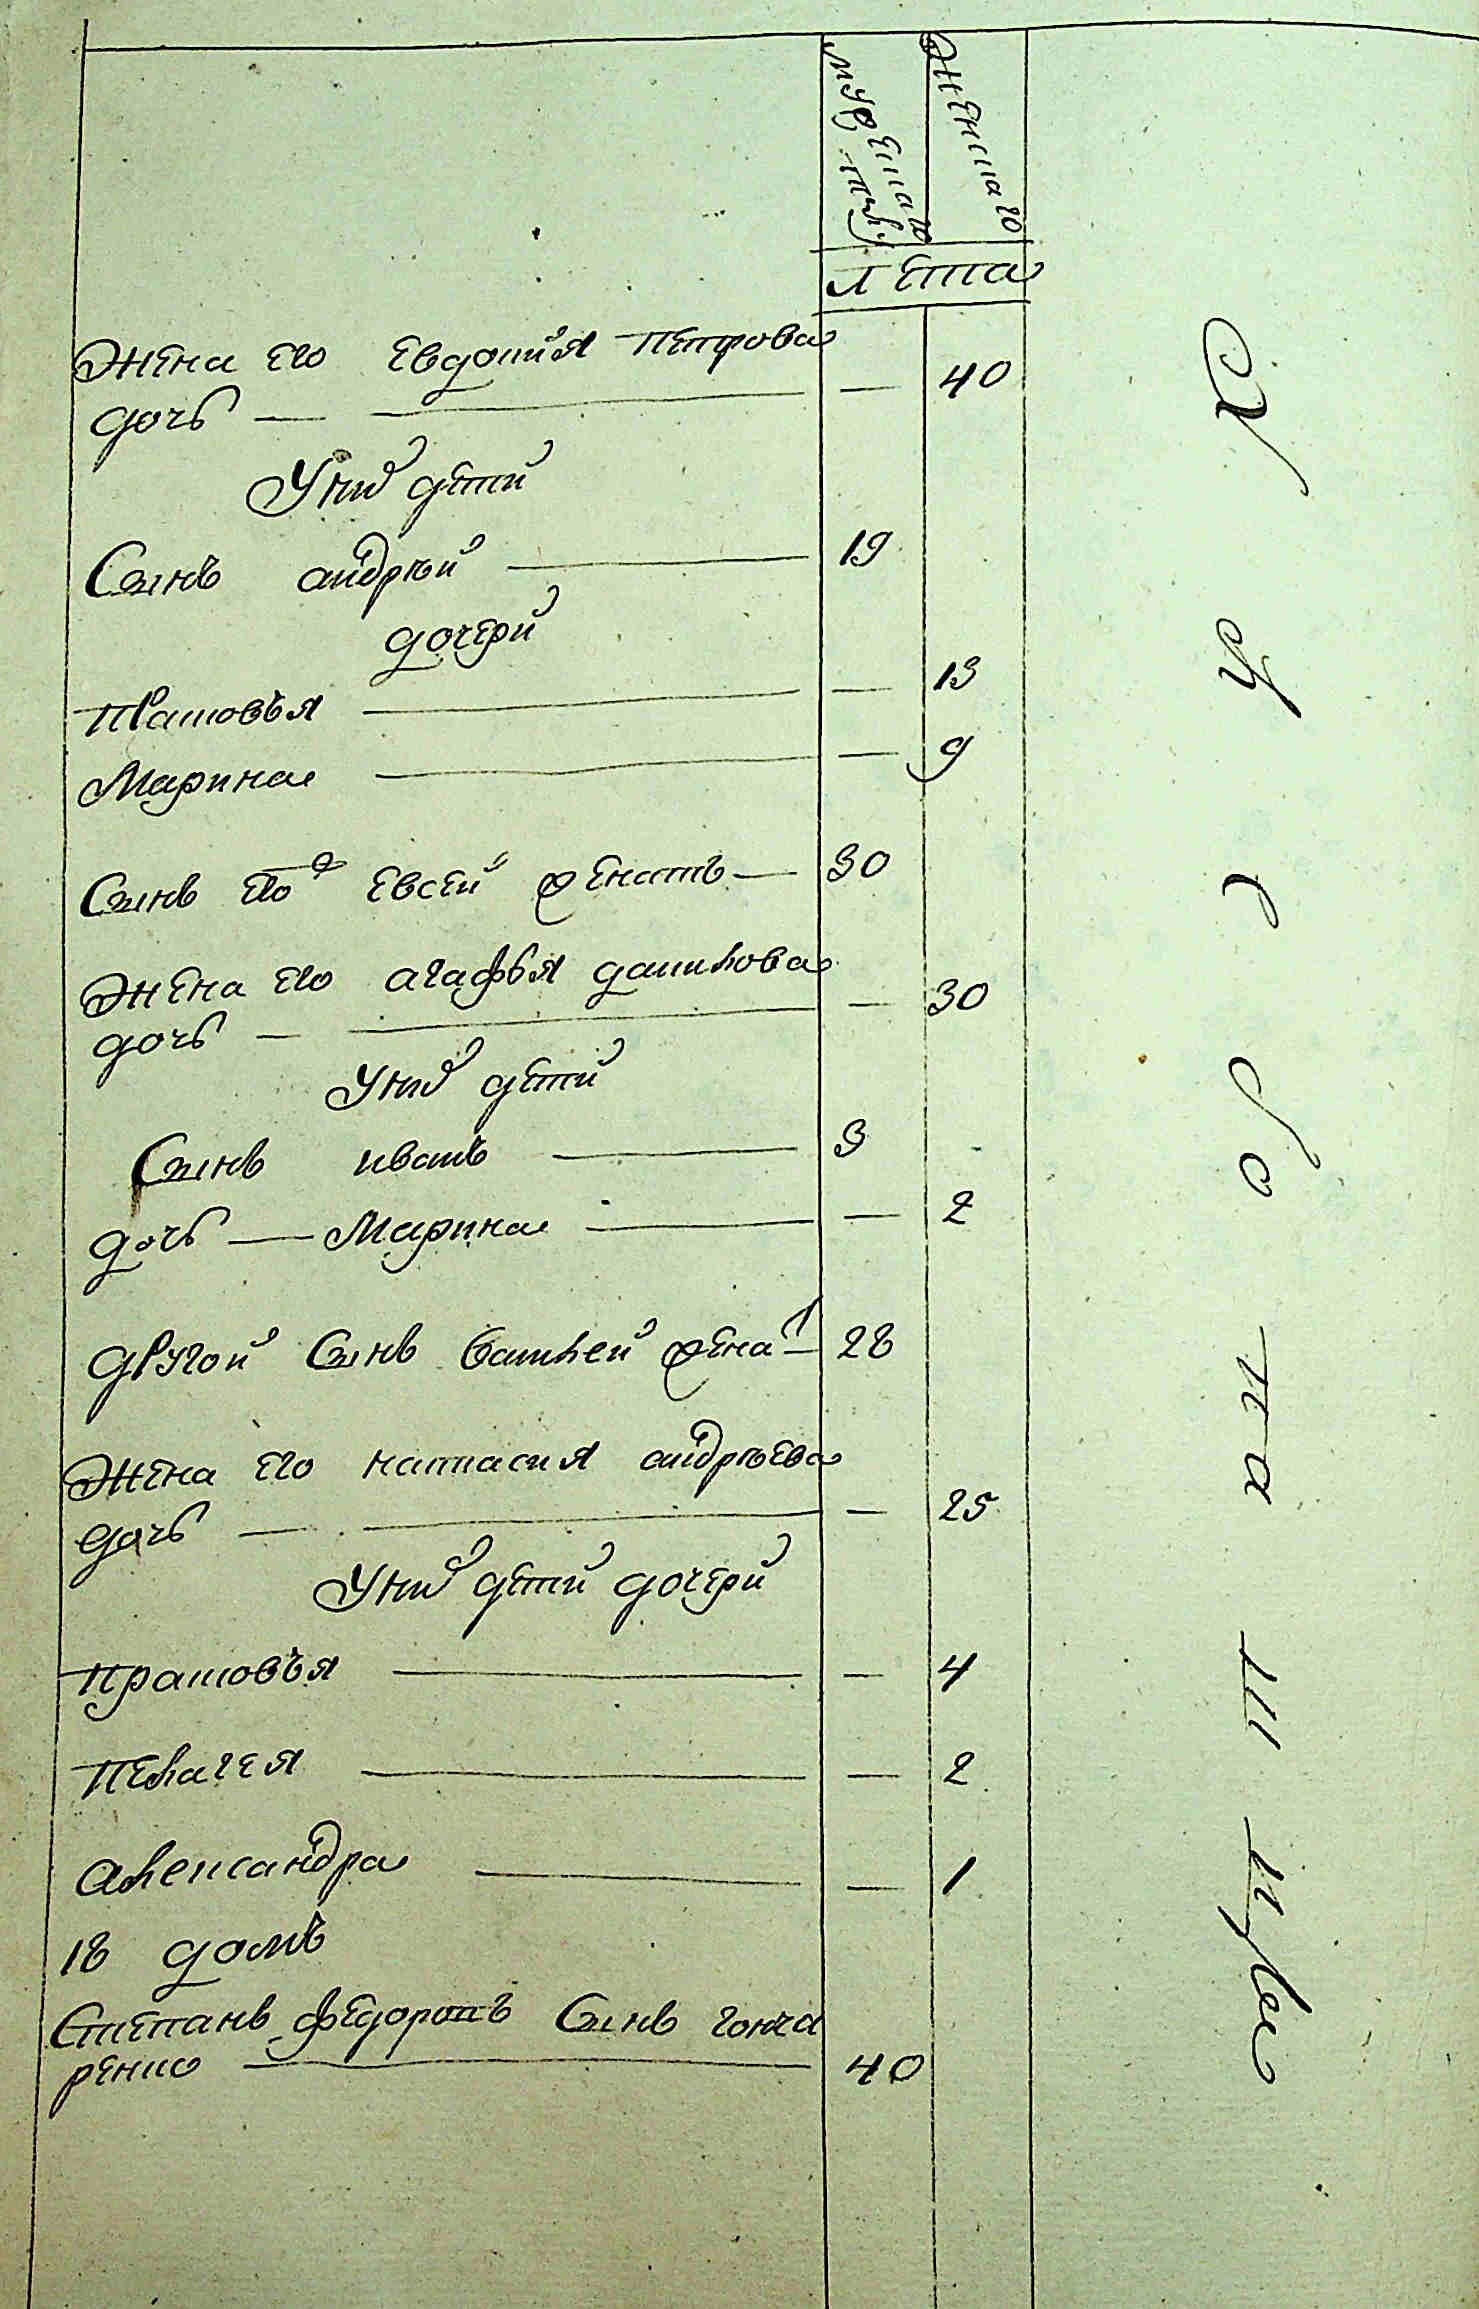 мужеска
женска
лета
Жена его Евдокия Петрова
дочь — — 40
У них дети
Сынъ андрѣй — 19
дочери
Пасковъя — — 13
Марина — — 9
Сынъ его Евсей женатъ — 30
Жена его агафья данилова
дочь — — 30
У них дети
Сынъ иванъ — 3
дочь — Марина — — 2
другой Сынъ женат — 28
Жена его настасия андрѣева
дочь — — 25
У них дети дочери
прасковъя — — 4
пелагея — — 2
александра — — 1
18 домъ
Степанъ федоровъ Сынъ гонча
ренко — 40